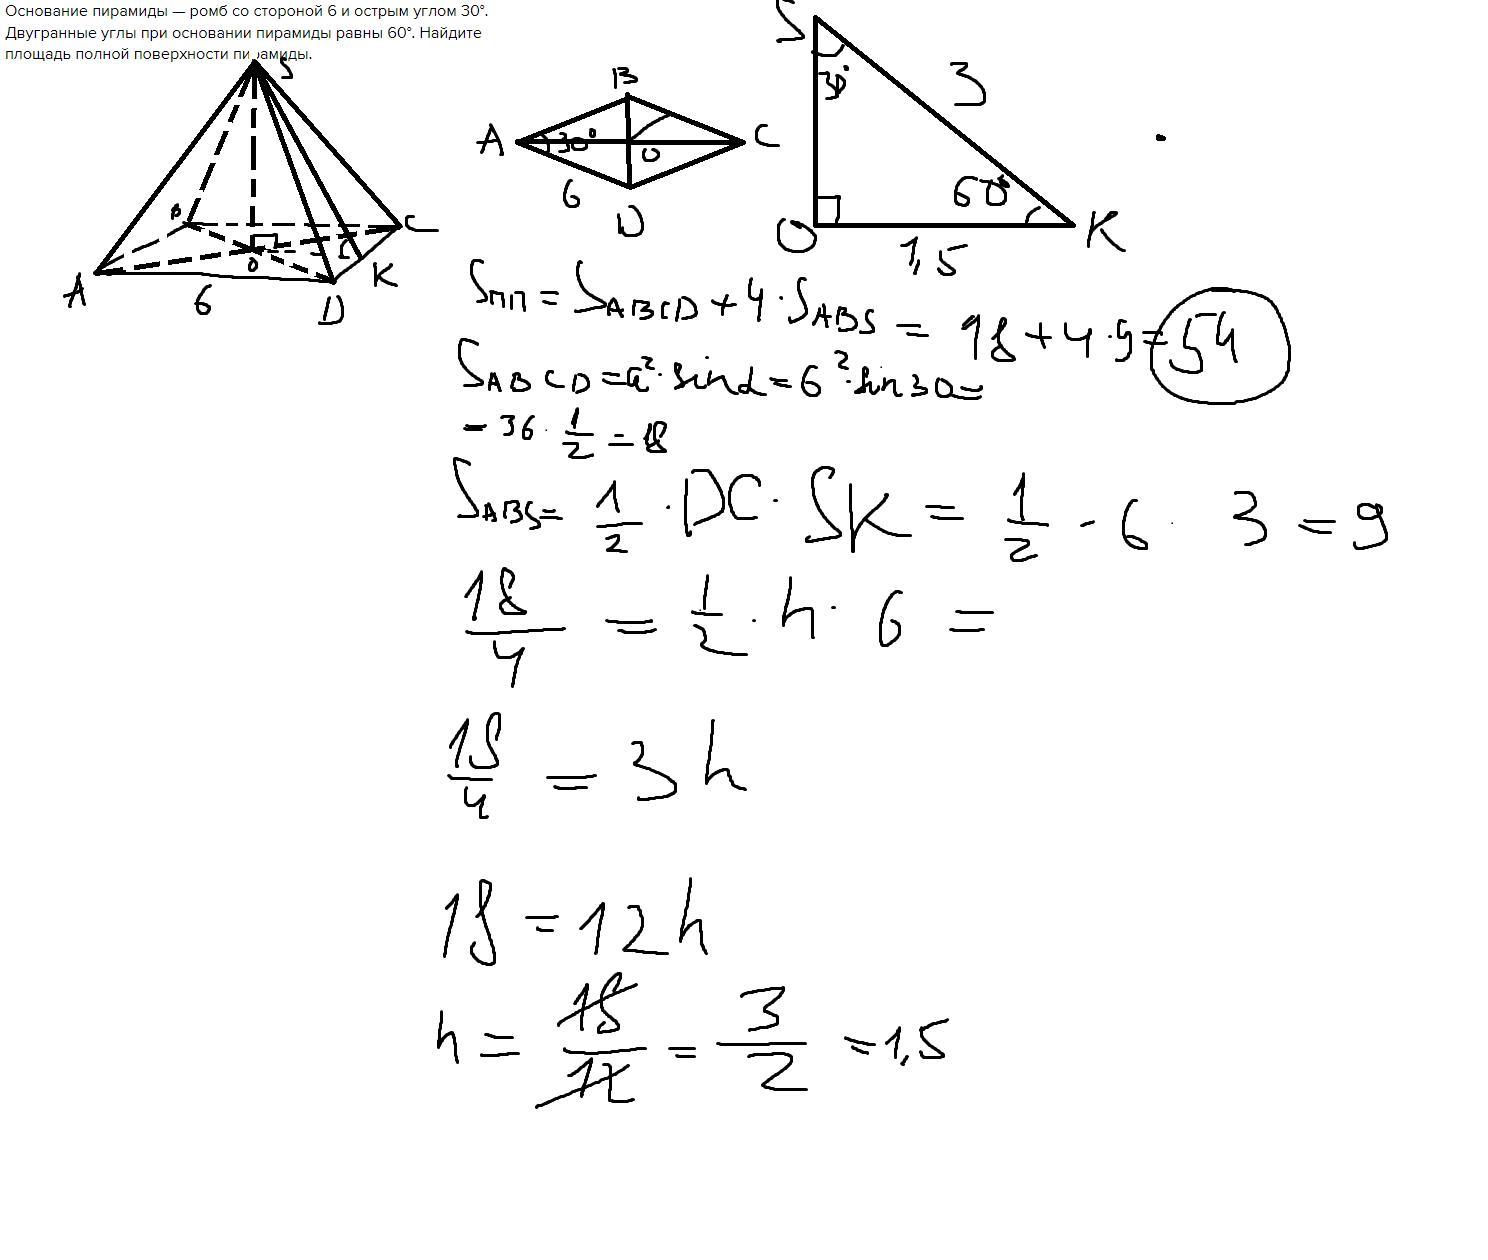 Основание пирамиды — ромб со стороной 6 и острым углом 30°.
Двугранные углы при основании пирамиды равны 60°. Найдите
площадь полной поверхности пирамиды.
S
B
A
O
6
D
K
C
B
A
30°
O
C
6
D
S
30°
3
60°
O
1,5
K
Sпп = SABCD + 4 · SABS = 18 + 4 · 9 = 54
SABCD = a² · sinα = 6² · sin30 =
= 36 · 1/2 = 18
SABS = 1/2 · DC · SK = 1/2 · 6 · 3 = 9
18/4 = 1/2 · h · 6 =
18/4 = 3h
18 = 12h
h = 18/12 = 3/2 = 1,5